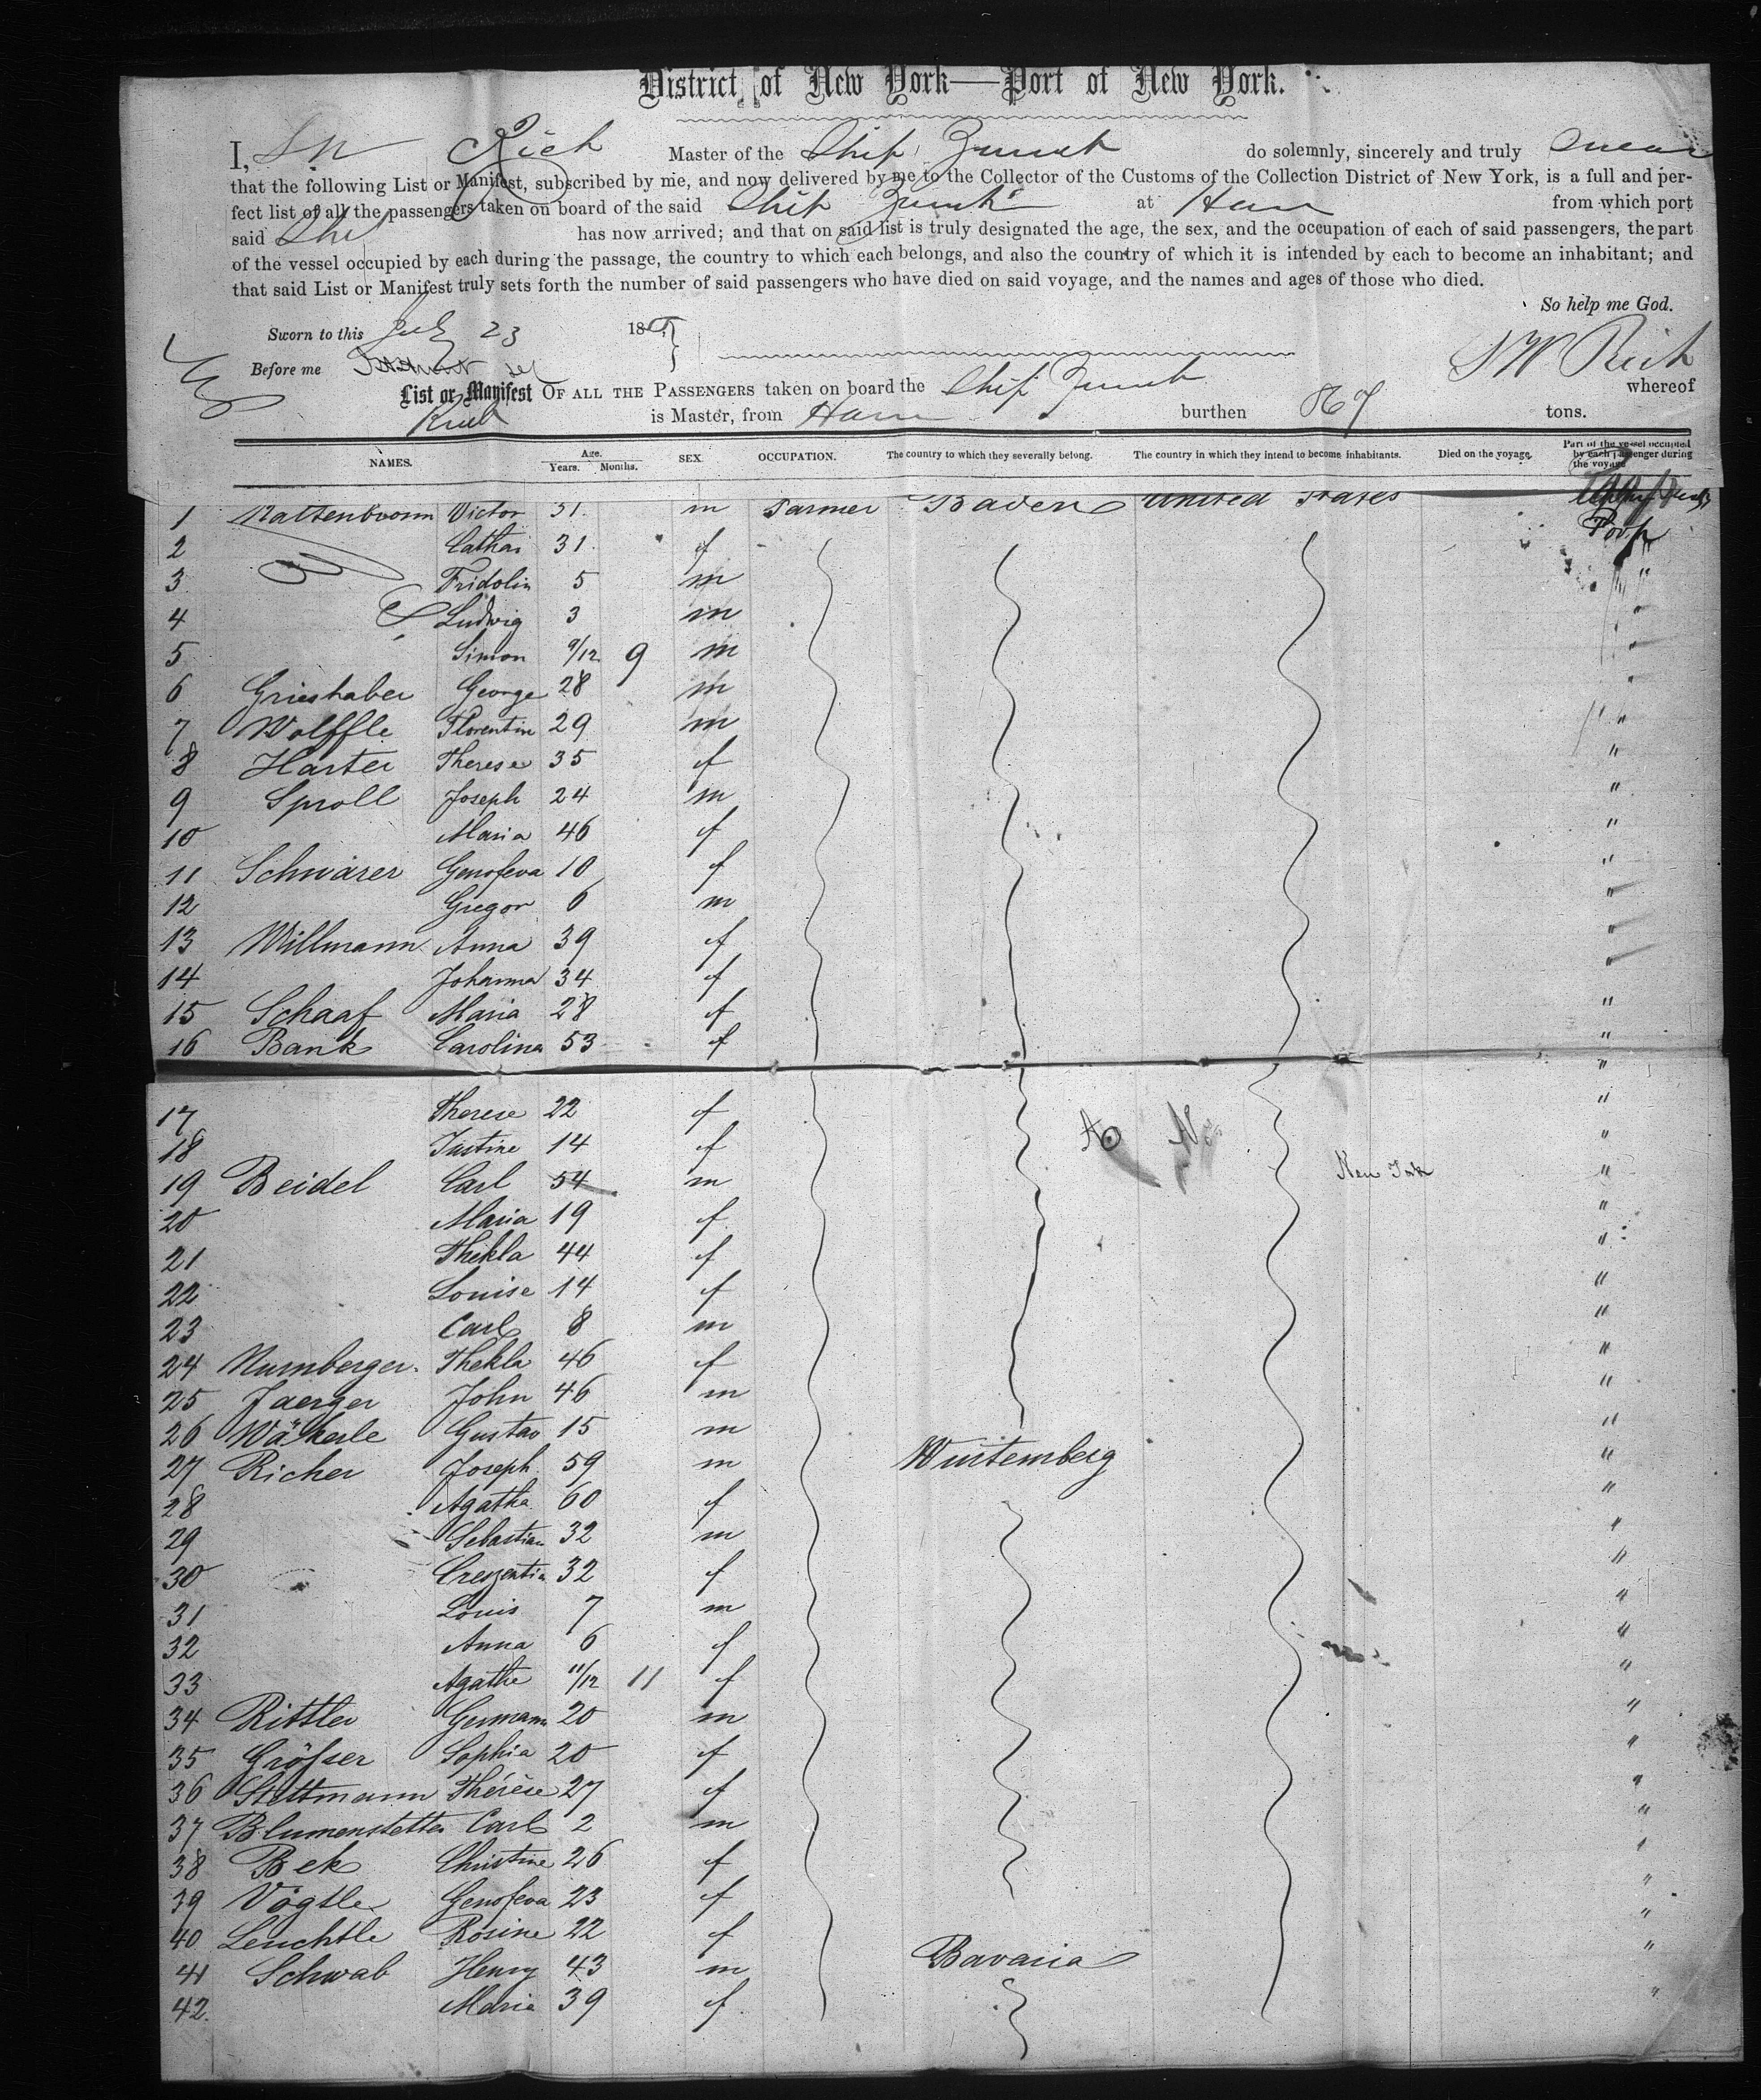 District of New York—Port of New York.
I, S W Rich Master of the Ship Zurich do solemnly, sincerely and truly swear
that the following List or Manifest, subscribed by me, and now delivered by me to the Collector of the Customs of the Collection District of New York, is a full and per-
fect list of all the passengers taken on board of the said Ship Zurich at Havre from which port
said Ship has now arrived; and that on said list is truly designated the age, the sex, and the occupation of each of said passengers, the part
of the vessel occupied by each during the passage, the country to which each belongs, and also the country of which it is intended by each to become an inhabitant; and
that said List or Manifest truly sets forth the number of said passengers who have died on said voyage, and the names and ages of those who died.
So help me God.
Sworn to this July 23 186
Before me
S W Rich
List or Manifest OF ALL THE PASSENGERS taken on board the Ship Zurich whereof
Rich is Master, from Havre burthen 867 tons.
NAMES. Age. Years. Months. SEX. OCCUPATION. The country to which they severally belong. The country in which they intend to become inhabitants. Died on the voyage. Part of the vessel occupied by each passenger during the voyage
1 Mattenboom Victor 31 m Farmer Baden United States
Poop
2 Catha 31 f
3 Fridolin 5 m "
4 Ludwig 3 m "
5 Simon 9/12 9 m "
6 Grieshaber George 28 m "
7 Wolffle Florentin 29 m "
8 Harter Therese 35 f "
9 Sproll Joseph 24 m "
10 Maria 46 f "
11 Schwärer Genofeva 10 f "
12 Gregor 6 m "
13 Willmann Anna 39 f "
14 Johanna 34 f "
15 Schaaf Maria 28 f "
16 Bank Carolina 53 f "
17 Therese 22 f "
18 Justine 14 f "
19 Beidel Carl 54 m New York "
20 Maria 19 f "
21 Thekla 44 f "
22 Louise 14 f "
23 Carl 8 m "
24 Nurnberger Thekla 46 f "
25 Jaerger John 46 m "
26 Wäkerle Gustav 15 m "
27 Richer Joseph 59 m Wurtemberg "
28 Agatha 60 f "
29 Sebastian 32 m "
30 Creszentia 32 f "
31 Louis 7 m "
32 Anna 6 f "
33 Agathe 11/12 11 f "
34 Rittler Germann 20 m "
35 Größer Sophia 20 f "
36 Stettmann Thérèse 27 f "
37 Blumenstetter Carl 2 m "
38 Bek Christine 26 f "
39 Vögtle Genofeva 23 f "
40 Leuchtle Rosine 22 f "
41 Schwab Henry 43 m Bavaria "
42 Marie 39 f "